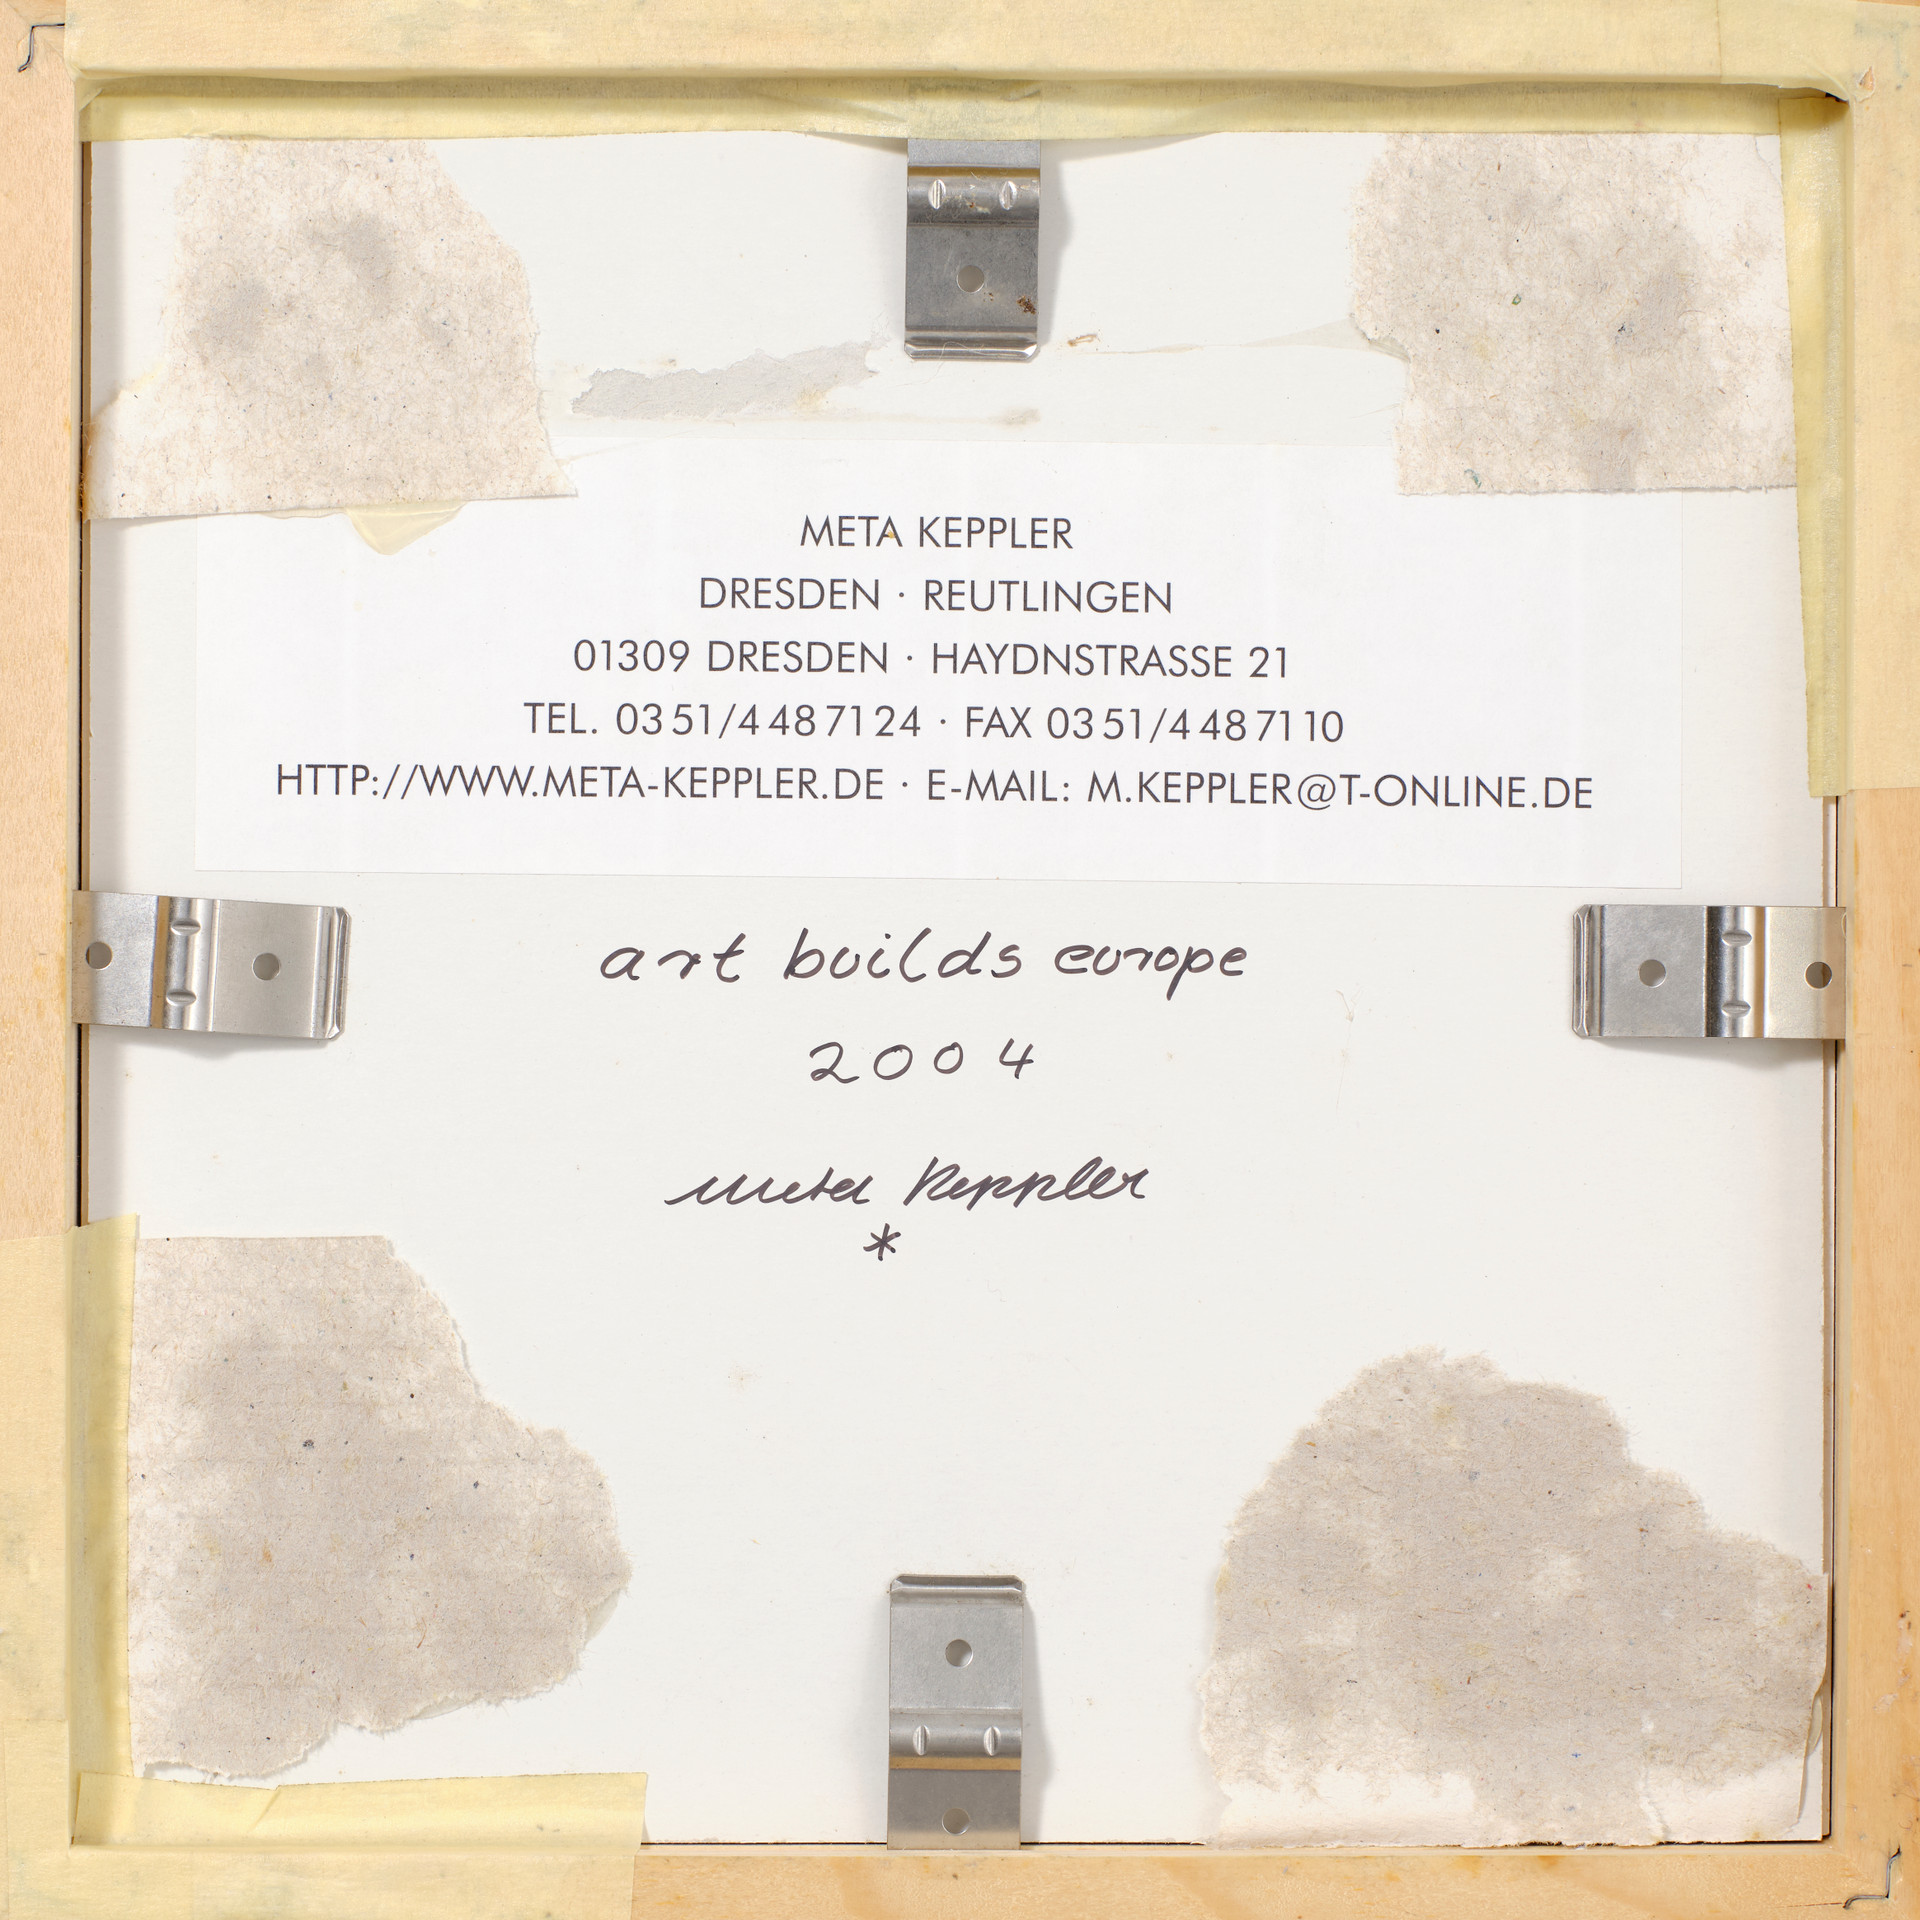 META KEPPLER
DRESDEN · REUTLINGEN
01309 DRESDEN · HAYDNSTRASSE 21
TEL. 03 51/4 48 71 24 · FAX 03 51/4 48 71 10
HTTP://WWW.META-KEPPLER.DE · E-MAIL: M.KEPPLER@T-ONLINE.DE
art builds europe
2004
Meta Keppler
*